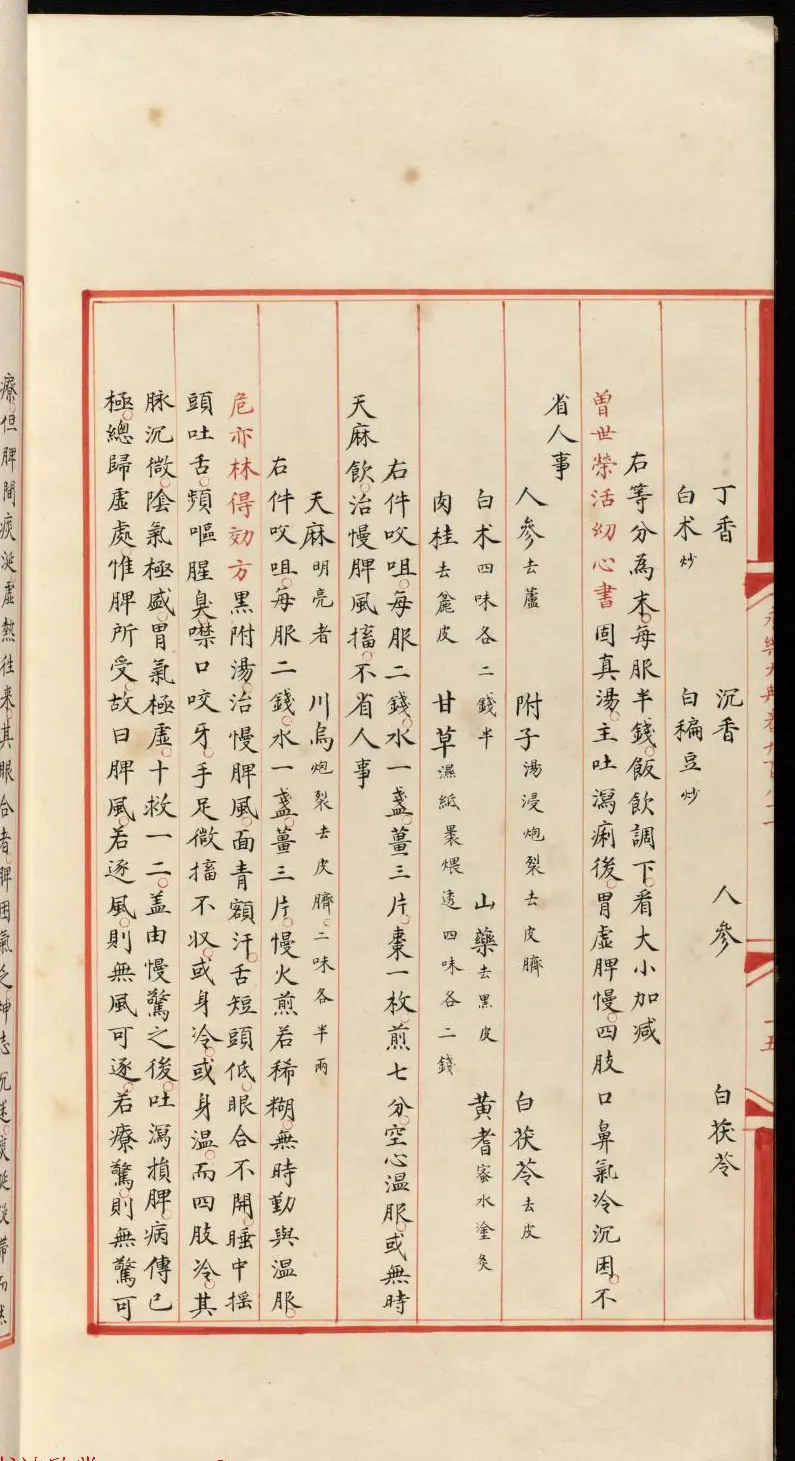 丁香　沉香　人參　白茯苓
白术炒　白稨豆炒
右等分為末。每服半錢。飯飲調下。看大小加減
曾世榮活幼心書固真湯。主吐瀉痢後。胃虛脾慢。四肢口鼻氣冷沉困。不
省人事
人參去蘆　附子湯浸炮裂去皮臍　白茯苓去皮
白术四味各二錢半　山藥去黑皮　黃耆蜜水塗炙
肉桂去麄皮　甘草濕紙裹煨透四味各二錢
右件㕮咀。每服二錢。水一盞。薑三片。棗一枚煎七分。空心温服。或無時
天麻飲。治慢脾風搐。不省人事
天麻明亮者　川烏炮裂去皮臍。二味各半兩
右件㕮咀。每服二錢。水一盞。薑三片。慢火煎若稀糊。無時勤與温服。
危亦林得効方黑附湯。治慢脾風。面青額汗。舌短頭低。眼合不開。睡中摇
頭吐舌。頻嘔腥臭。噤口咬牙。手足微搐不収。或身冷。或身温。而四肢冷。其
脉沉微。陰氣極盛。胃氣極虛。十救一二。盖由慢驚之後。吐瀉損脾。病傳已
極。總歸虛處。惟脾所受。故曰脾風。若逐風。則無風可逐。若療驚。則無驚可
療。但脾間痰涎。虛熱往来。其眼合者。脾困氣乏。神志沉迷。痰涎凝滯而然
永樂大典卷九百八一
十五